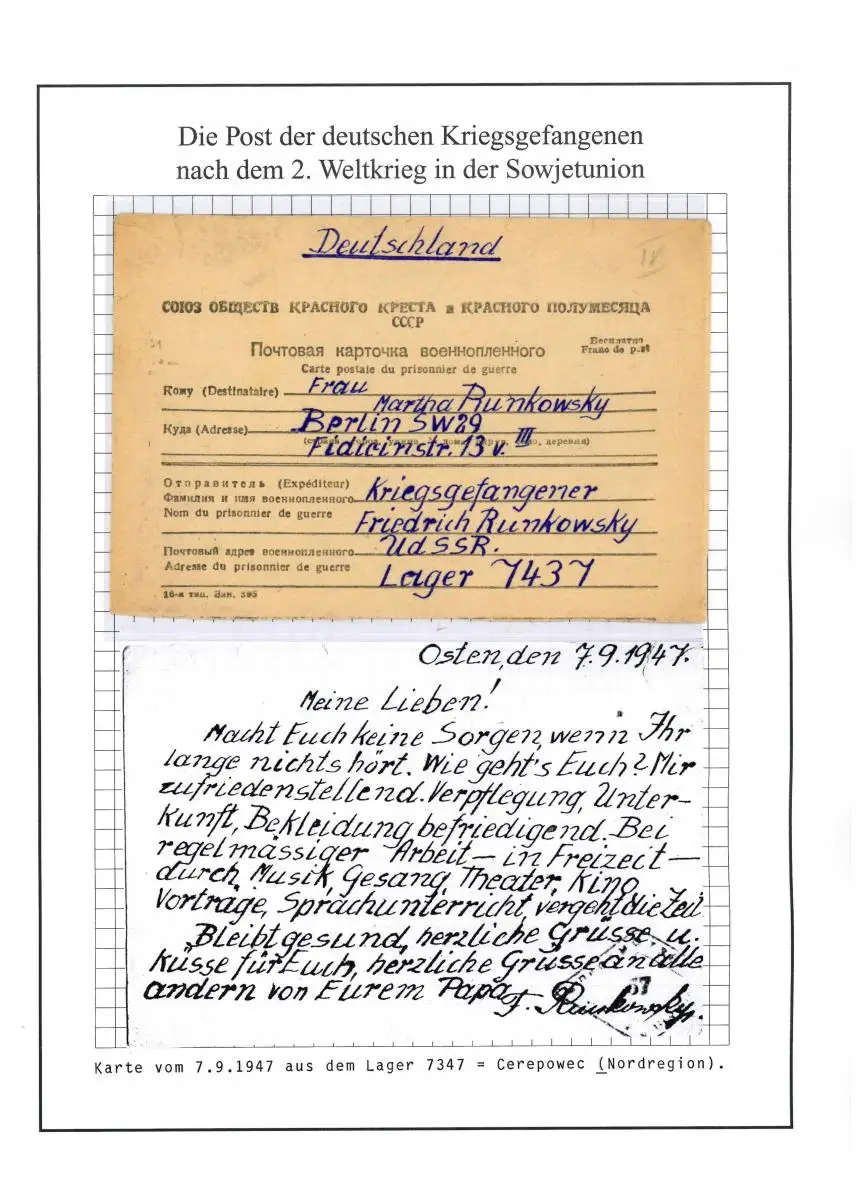 Die Post der deutschen Kriegsgefangenen
nach dem 2. Weltkrieg in der Sowjetunion
Deutschland
IV
СОЮЗ ОБЩЕСТВ КРАСНОГО КРЕСТА и КРАСНОГО ПОЛУМЕСЯЦА
СССР
Почтовая карточка военнопленного
Бесплатно
Franc de port
Carte postale du prisonnier de guerre
Кому (Destinataire) Frau
Martha Runkowsky
Куда (Adresse) Berlin SW29
str. 13 v. III
Отправитель (Expéditeur)
Фамилия и имя военнопленного Kriegsgefangener
Nom du prisonnier de guerre Friedrich Runkowsky
Почтовый адрес военнопленного UdSSR.
Adresse du prisonnier de guerre Lager 7437
16-я тип. Зак. 395
Osten, den 7.9.1947.
Meine Lieben!
Macht Euch keine Sorgen, wenn Ihr
lange nichts hört. Wie geht's Euch? Mir
zufriedenstellend. Verpflegung, Unter-
Kunft, Bekleidung befriedigend. Bei
regelmässiger Arbeit – in Freizeit –
durch Musik, Gesang, Theater, Kino
Vorträge, Sprachunterricht, vergeht die Zeit
Bleibt gesund, herzliche Grüsse u.
Küsse für Euch, herzliche Grüsse an alle
andern von Eurem Papa F. Runkowsky.
67
Karte vom 7.9.1947 aus dem Lager 7347 = Cerepowec (Nordregion).